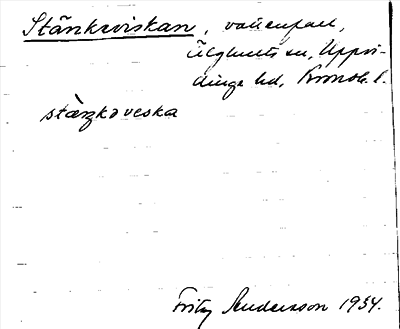 Stänkeviskan, vattenfall,
Älghults sn, Uppvi-
dinge hd, Kronob. l.
stäŋkəveska
Fritz Andersson 1934.